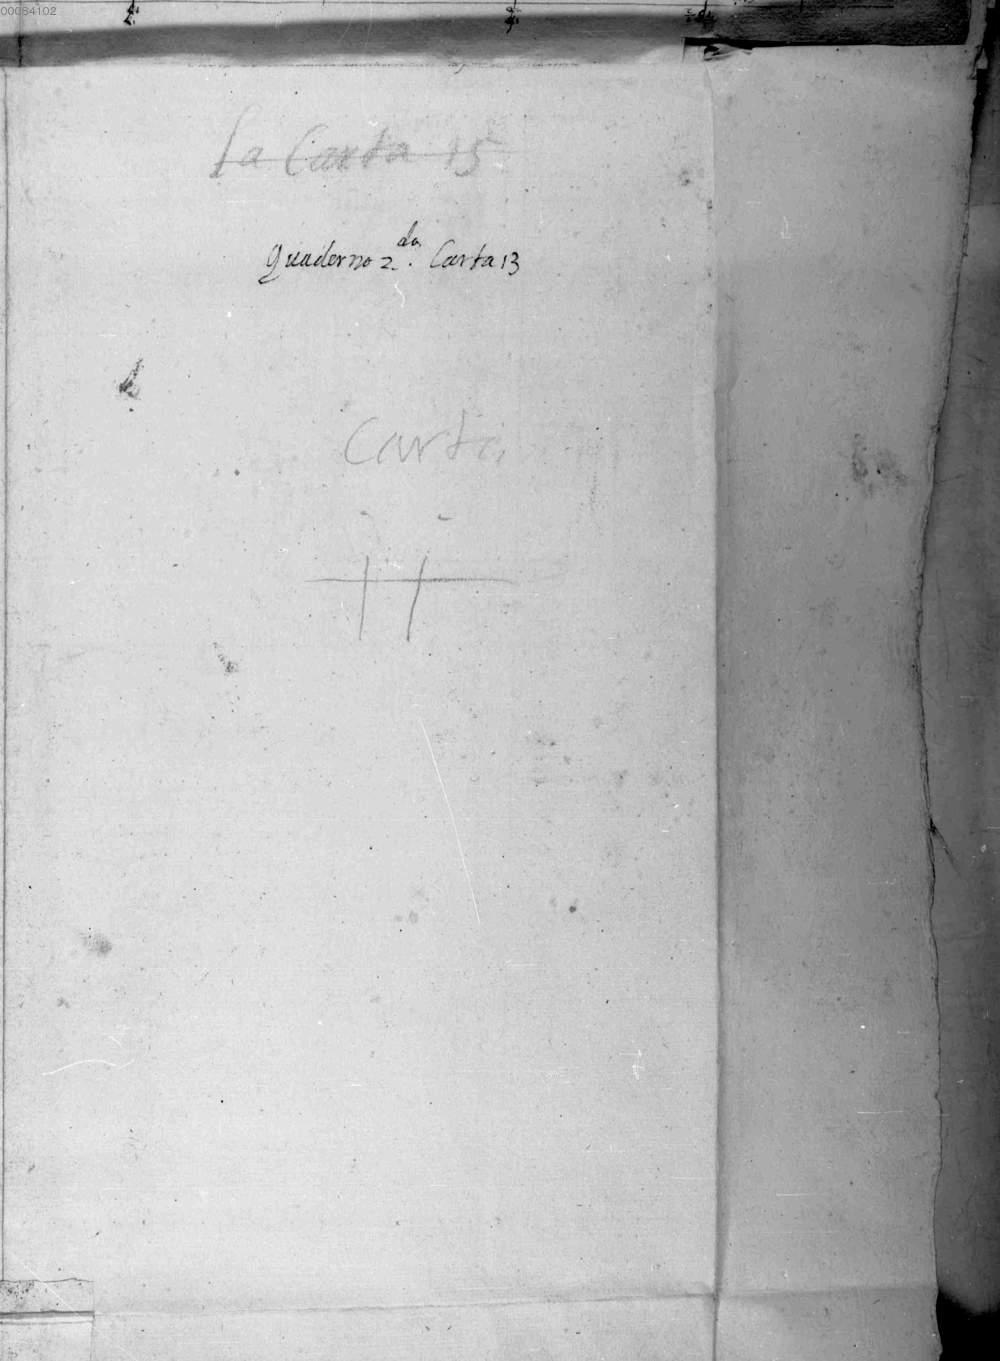 00084102
La Carta 15
Quaderno 2.da Carta 13
Carta
11